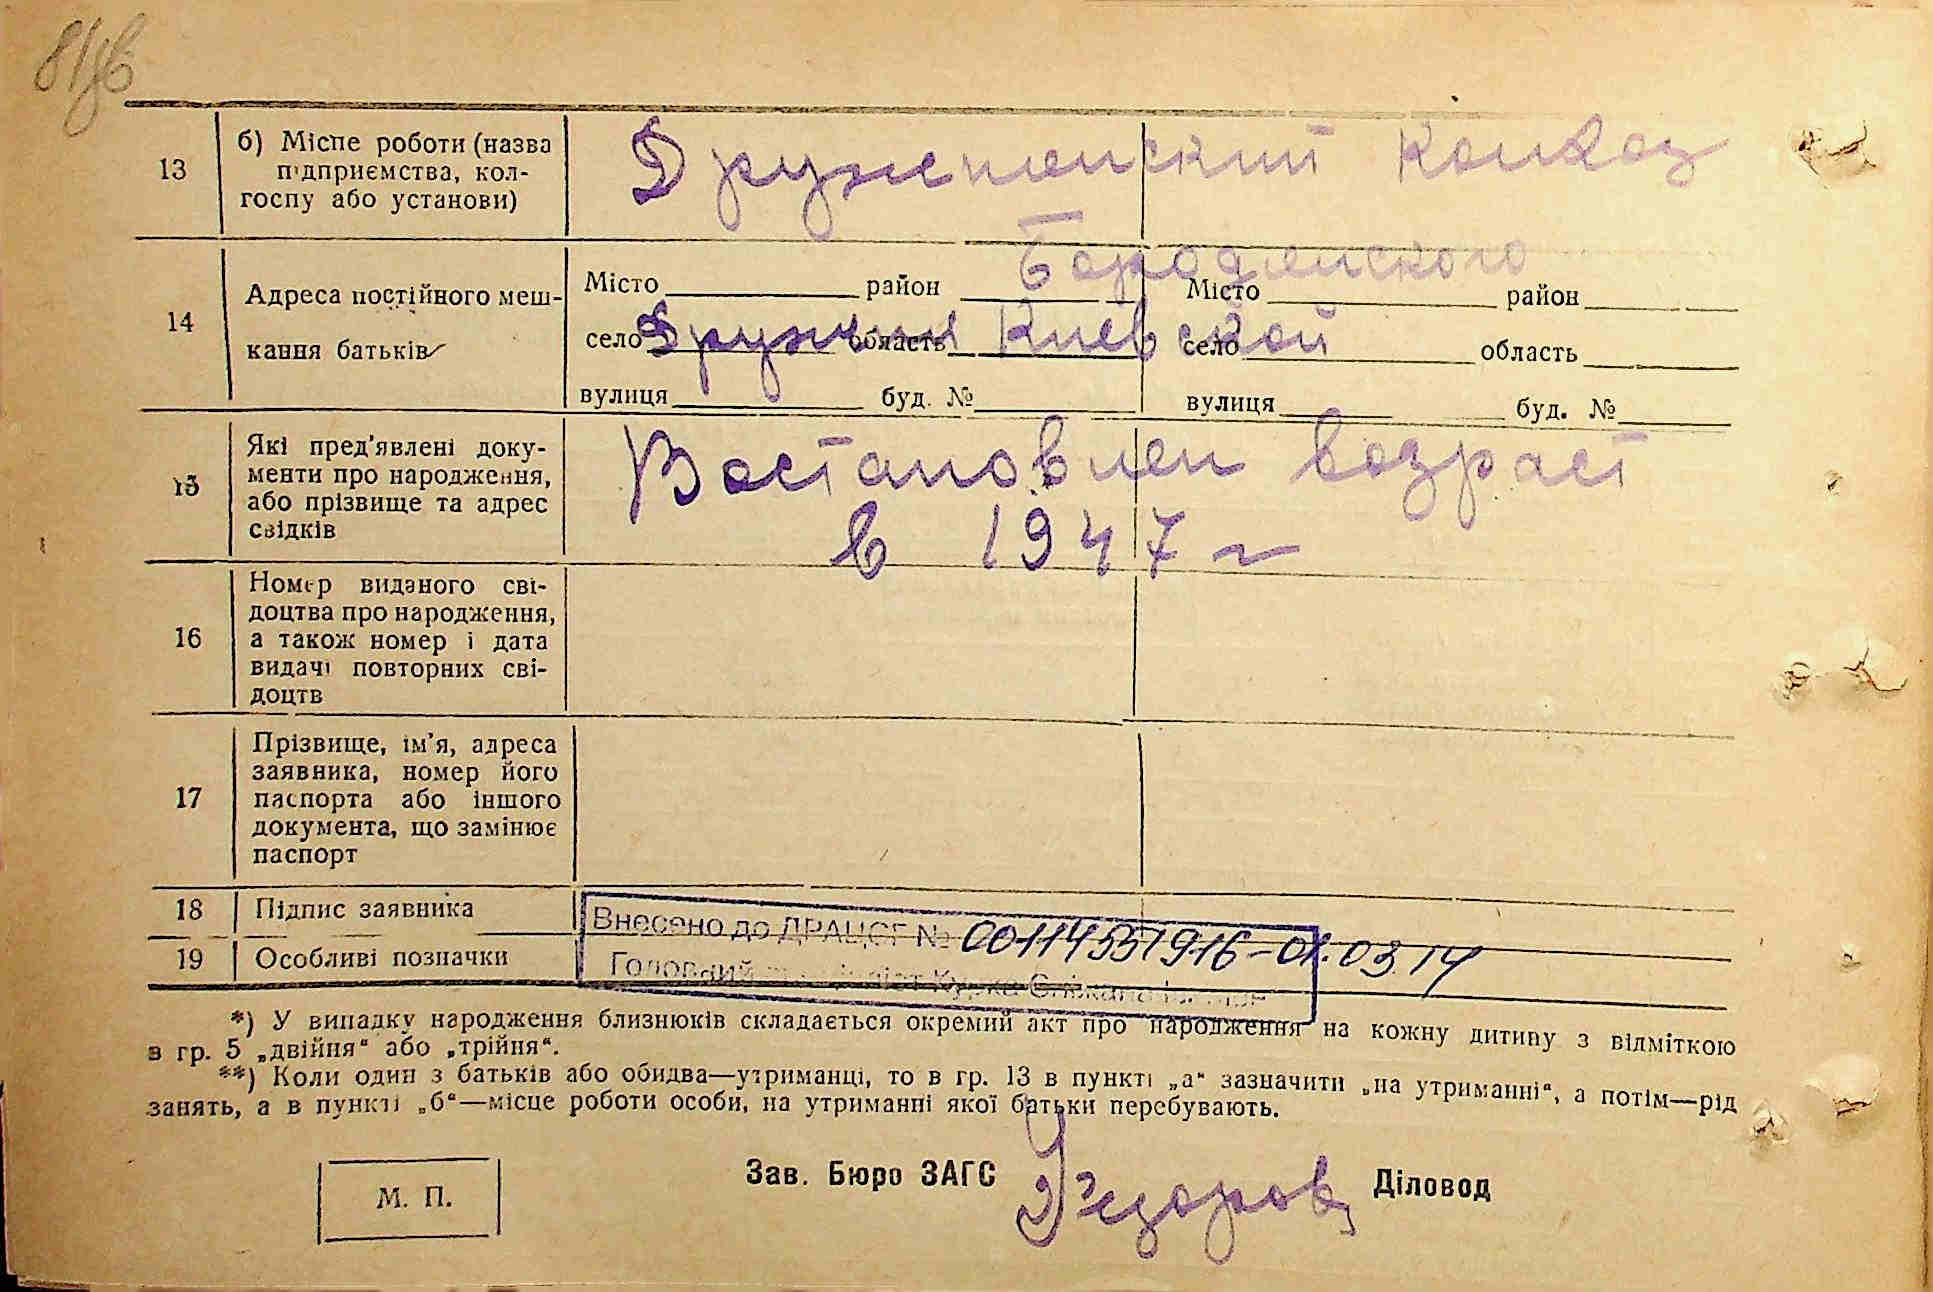 81зв
13
б) Місце роботи (назва
підприємства, кол-
госпу або установи)
Дружненский колхоз
14
Адреса постійного меш-
кання батьків
Бородянского
Місто район Місто район
село Дружня область Киевской село область
вулиця буд. № вулиця буд. №
15
Які пред'явлені доку-
менти про народження,
або прізвище та адрес
свідків
Востановлен возраст
в 1947 г
16
Номер виданого сві-
доцтва про народження,
а також номер і дата
видачі повторних сві-
доцтв
17
Прізвище, ім'я, адреса
заявника, номер його
паспорта або іншого
документа, що замінює
паспорт
18 Підпис заявника
Внесено до ДРАЦСГ № 00114551916-01.03.14
19 Особливі позначки
Головний
*) У випадку народження близнюків складається окремий акт про народження на кожну дитину з відміткою
в гр. 5 „двійня“ або „трійня“.
**) Коли один з батьків або обидва—утриманці, то в гр. 13 в пункті „а“ зазначити „на утриманні“, а потім—рід
занять, а в пункті „б“—місце роботи особи, на утриманні якої батьки перебувають.
М. П.
Зав. Бюро ЗАГС
Діловод